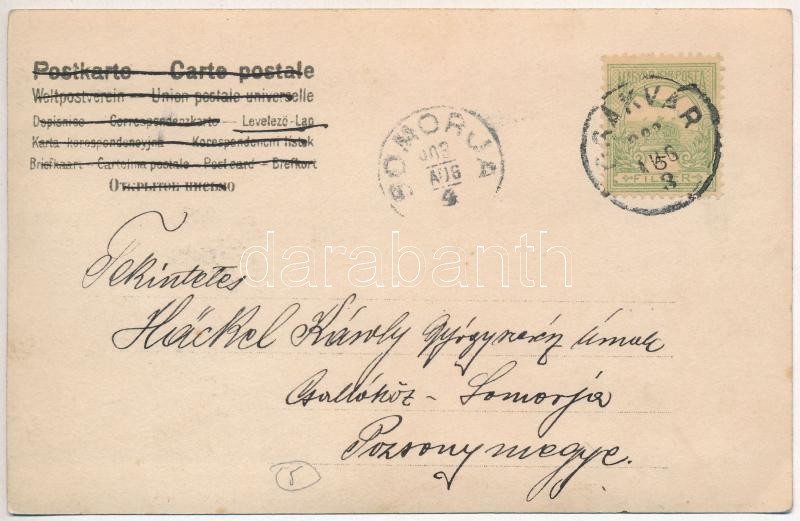 Postkarte — Carte postale
Weltpostverein — Union postale universelle
Dopisnice — Correspondenzkarte — Levelező-Lap
Karta korespondencyjna — Korespondenční lístek
Briefkaart — Cartolina postale — Post card — Brefkort
Открытое письмо
SOMORJA
903
AUG
4
MAGYAR KIR. POSTA
FILLÉR
AKVÁR
AUG
3
darabanth
Tekintetes
Häckel Károly Gyógyszerész Úrnak
Csallóköz - Somorja
Pozsony megye.
5